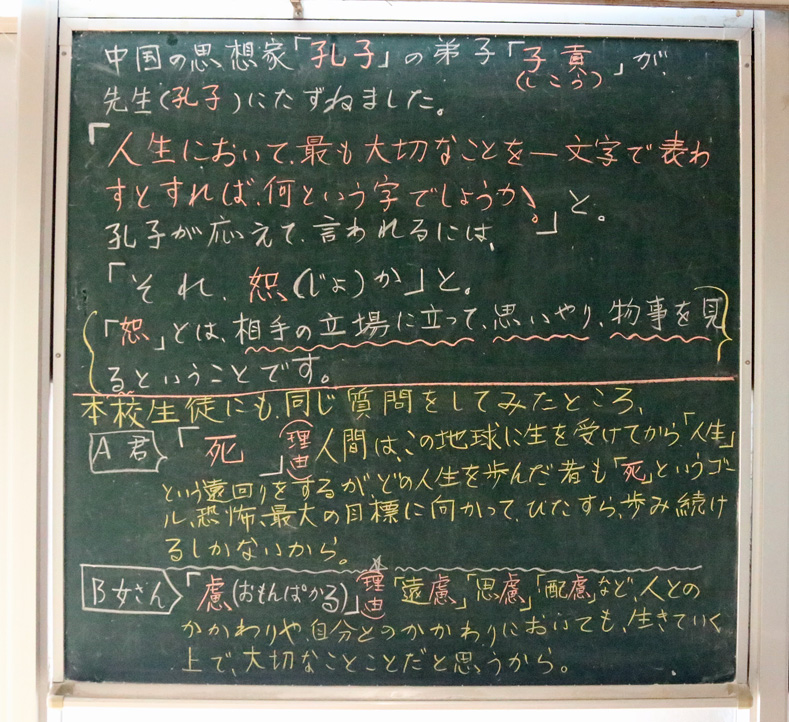 中国の思想家「孔子」の弟子「子貢」が、
(しこう)
先生(孔子)にたずねました。
「人生において、最も大切なことを一文字で表わ
すとすれば、何という字でしょうか!。」と。
孔子が応えて、言われるには、
「それ、恕(じょ)か」と。
「恕」とは、相手の立場に立って、思いやり、物事を見
るということです。
本校生徒にも、同じ質問をしてみたところ、
A君 「死」(理由) 人間は、この地球に生を受けてから「人生」
という遠回りをするが、どの人生を歩んだ者も「死」というゴー
ル、恐怖、最大の目標に向かって、ひたすら、歩み続け
るしかないから。
B女さん 「慮(おもんぱかる)」理由 「遠慮」「思慮」「配慮」など、人との
かかわりや、自分とのかかわりにおいても、生きていく
上で、大切なことことだと思うから。